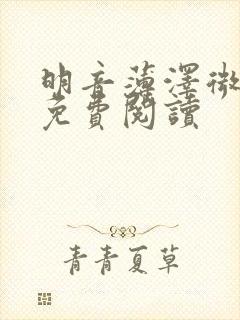 明音薄澤微
免費閱讀
青青夏草